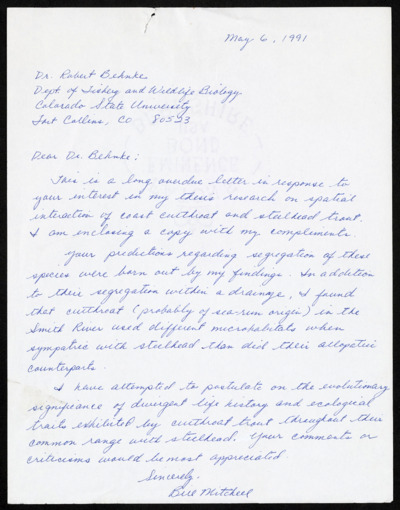 May 6, 1991
Dr. Robert Behnke
Dept. of Fishery and Wildlife Biology
Colorado State University
Fort Collins, CO 80523
Dear Dr. Behnke:
This is a long overdue letter in response to
your interest in my thesis research on spatial
interaction of coast cutthroat and steelhead trout.
I am enclosing a copy with my compliments.
Your predictions regarding segregation of these
species were born out by my findings. In addition
to their segregation within a drainage, I found
that cutthroat (probably of sea-run origin) in the
Smith River used different microhabitats when
sympatric with steelhead than did their allopatric
counterparts.
I have attempted to postulate on the evolutionary
significance of divergent life history and ecological
traits exhibited by cutthroat trout throughout their
common range with steelhead. Your comments or
criticisms would be most appreciated.
Sincerely,
Bill Mitchell